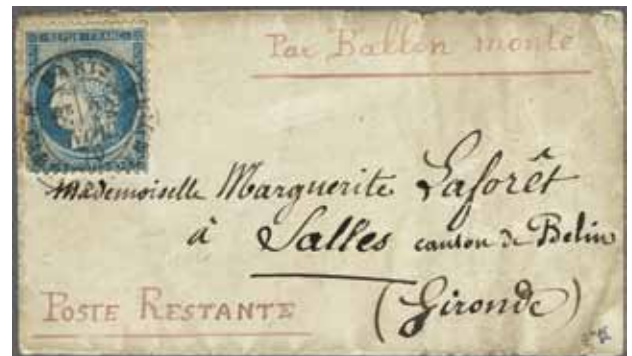 REPUB. FRANC.
PARIS
Par Ballon monté
Mademoiselle Marguerite Laforêt
à Salles canton de Belin
(Gironde)
POSTE RESTANTE